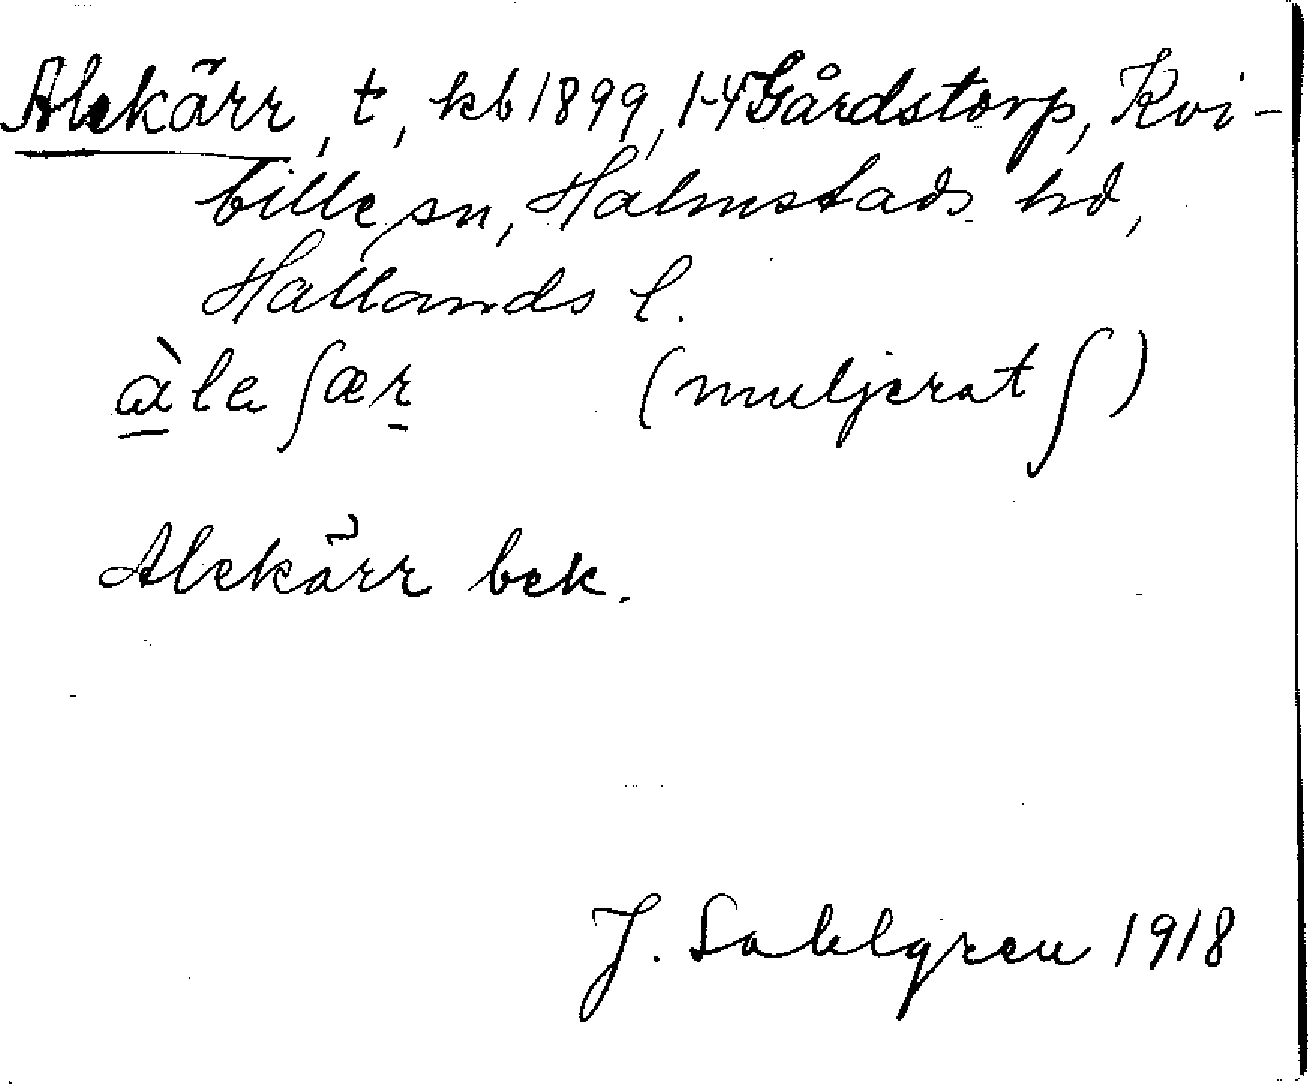 Alekärr, t, kb 1899, 1-4 Gårdstorp, Kvi-
bille sn, Halmstads hd,
Hallands l.
àle ʃær (muljerat ʃ)
Alekärr bek.
J. Sahlgren 1918